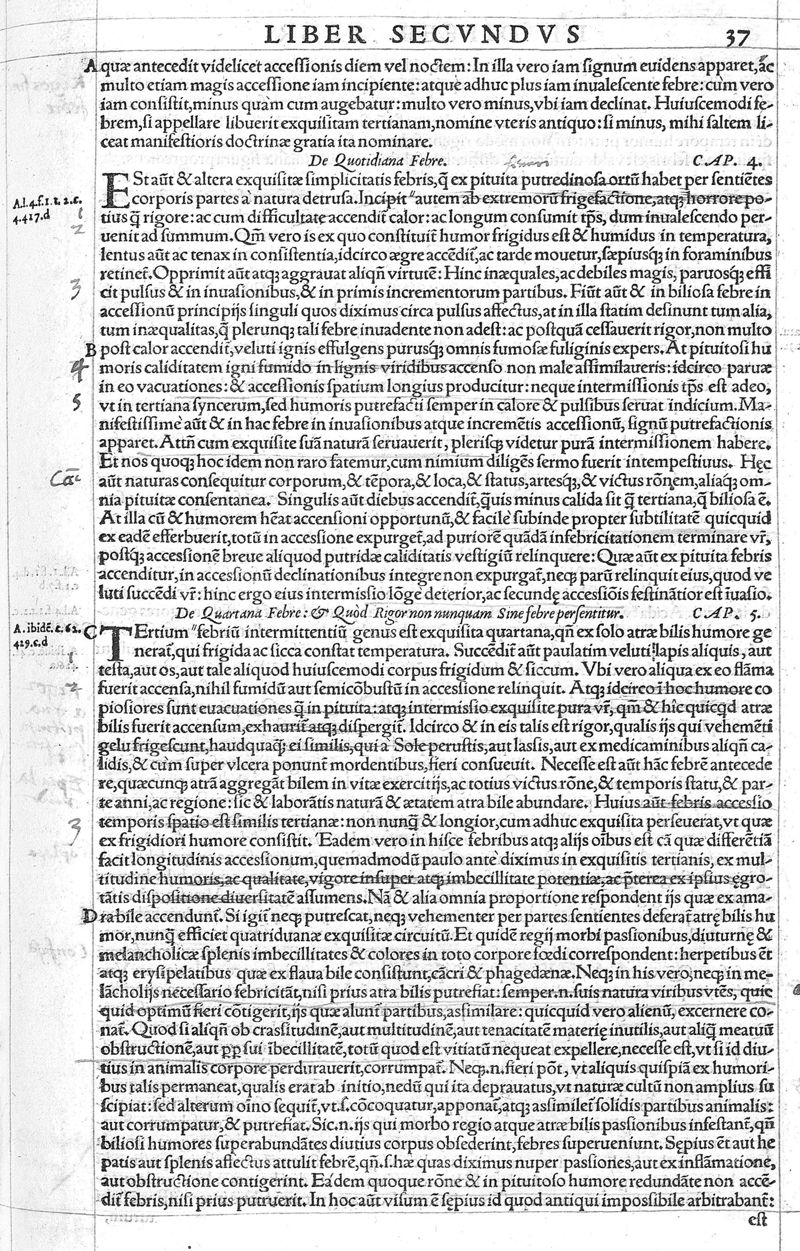 LIBER SECVNDVS 37
A quæ antecedit videlicet accessionis diem vel noctem: In illa vero iam signum euidens apparet, ac̃
multo etiam magis accessione iam incipiente: atque adhuc plus iam inualescente febre: cum vero
iam consistit, minus quam cum augebatur: multo vero minus, vbi iam declinat. Huiuscemodi fe-
brem, si appellare libuerit exquisitam tertianam, nomine vteris antiquo: si minus, mihi saltem li-
ceat manifestioris doctrinæ gratia ita nominare.
De Quotidiana Febre. CAP. 4.
A.l.4.f.1.t.2.c.
4.417.d
ESt aũt & altera exquisitæ simplicitatis febris, q̃ ex pituita putredinosa ortũ habet per sentiẽtes
corporis partes a natura detrusa. Incipit autem ab extremorũ frigefactione, atq; horrore po-
tius q̃ rigore: ac cum difficultate accendit̃ calor: ac longum consumit tp̃s, dum inualescendo per-
uenit ad summum. Qm̃ vero is ex quo constituit̃ humor frigidus est & humidus in temperatura,
lentus aũt ac tenax in consistentia, idcirco ægre accẽdit̃, ac tarde mouetur, sæpiusq; in foraminibus
retinet̃. Opprimit aũt atq; aggrauat aliqñ virtutẽ: Hinc inæquales, ac debiles magis, paruosq; effi
cit pulsus & in inuasionibus, & in primis incrementorum partibus. Fiũt aũt & in biliosa febre in
accessionũ principijs singuli quos diximus circa pulsus affectus, at in illa statim desinunt tum alia,
tum inæqualitas, q̃ plerunq; tali febre inuadente non adest: ac postquã cessauerit rigor, non multo
B post calor accendit̃, veluti ignis effulgens purusq; omnis fumosæ fuliginis expers. At pituitosi hu
moris caliditatem igni fumido in lignis viridibus accenso non male assimilaueris: idcirco paruæ
in eo vacuationes: & accessionis spatium longius producitur: neque intermissionis tp̃s est adeo,
vt in tertiana syncerum, sed humoris putrefacti semper in calore & pulsibus seruat indicium. Ma-
nifestissime aũt & in hac febre in inuasionibus atque incremẽtis accessionũ, signũ putrefactionis
apparet. Attñ cum exquisite suã naturã seruauerit, plerisq; videtur purã intermissionem habere.
Et nos quoq; hoc idem non raro fatemur, cum nimium diligẽs sermo fuerit intempestiuus. Hęc
aũt naturas consequitur corporum, & tẽpora, & loca, & status, artesq;, & victus rõnem, aliaq; om-
nia pituitæ consentanea. Singulis aũt diebus accendit̃, q̃uis minus calida sit q̃ tertiana, q̃ biliosa ẽ.
At illa cũ & humorem hẽat accensioni opportunũ, & facile subinde propter subtilitatẽ quicquid
ex eadẽ efferbuerit, totũ in accessione expurget, ad puriorẽ quãdã infebricitationem terminare vr̃,
postq; accessionẽ breue aliquod putridæ caliditatis vestigiũ relinquere: Quæ aũt ex pituita febris
accenditur, in accessionũ declinationibus integre non expurgat̃, neq; parũ relinquit eius, quod ve
luti succẽdi vr̃: hinc ergo eius intermissio lõge deterior, ac secundę accessiõis festinãtior est ĩuasio.
De Quartana Febre: & Quòd Rigor non nunquam Sine febre persentitur. CAP. 5.
A. ibidẽ. c. 62.
419.c.d
C TErtium febriũ intermittentiũ genus est exquisita quartana, qñ ex solo atræ bilis humore ge
nerat̃, qui frigida ac sicca constat temperatura. Succẽdit̃ aũt paulatim veluti lapis aliquis, aut
testa, aut os, aut tale aliquod huiuscemodi corpus frigidum & siccum. Vbi vero aliqua ex eo flãma
fuerit accensa, nihil fumidũ aut semicõbustũ in accessione relinquit. Atq; idcirco ĩ hoc humore co
piosiores sunt euacuationes q̃ in pituita: atq; intermissio exquisite pura vr̃, qm̃ & hic quicq̃d atræ
bilis fuerit accensum, exhaurit̃ atq; dispergit̃. Idcirco & in eis talis est rigor, qualis ijs qui vehemẽti
gelu frigescunt, haudquaq; ei similis, qui a Sole perustis, aut lassis, aut ex medicaminibus aliqñ ca-
lidis, & cum super vlcera ponunt̃ mordentibus, fieri consueuit. Necesse est aũt hãc febrẽ antecede
re, quæcunq; atrã aggregãt bilem in vitæ exercitijs, ac totius victus rõne, & temporis statu, & par-
te anni, ac regione: sic & laborãtis naturã & ætatem atra bile abundare. Huius aũt febris accessio
temporis spatio est similis tertianæ: non nunq̃ & longior, cum adhuc exquisita perseuerat, vt quæ
ex frigidiori humore consistit. Eadem vero in hisce febribus atq; alijs oĩbus est cã quæ differẽtiã
facit longitudinis accessionum, quemadmodũ paulo ante diximus in exquisitis tertianis, ex mul-
titudine humoris, ac qualitate, vigore insuper atq; imbecillitate potentiæ, ac p̃terea ex ipsius ęgro-
tãtis dispositione diuersitatẽ assumens. Nã & alia omnia proportione respondent ijs quæ ex ama-
D ra bile accendunt̃. Si igit̃ neq; putrescat, neq; vehementer per partes sentientes deferat̃ atrę bilis hu
mor, nunq̃ efficiet quatriduanæ exquisitæ circuitũ. Et quidẽ regij morbi passionibus, diuturnę &
melancholicæ splenis imbecillitates & colores in toto corpore fœdi correspondent: herpetibus ẽt
atq; erysipelatibus quæ ex flaua bile consistunt, cãcri & phagedænæ. Neq; in his vero, neq; in me-
lãcholijs necessario febricitãt, nisi prius atra bilis putrefiat: semper .n. suis natura viribus vtẽs, quic
quid optimũ fieri cõtigerit, ijs quæ alunt̃ partibus, assimilare: quicquid vero alienũ, excernere co-
nat̃. Quod si aliqñ ob crassitudinẽ, aut multitudinẽ, aut tenacitatẽ materię inutilis, aut aliq̃ meatuũ
obstructionẽ, aut ꝓꝑ sui ĩbecillitatẽ, totũ quod est vitiatũ nequeat expellere, necesse est, vt si id diu-
tius in animalis corpore perdurauerit, corrumpat̃. Neq; .n. fieri põt, vt aliquis quispiã ex humori-
bus talis permaneat, qualis erat ab initio, nedũ qui ita deprauatus, vt naturæ cultũ non amplius su
scipiat: sed alterum oĩno sequit̃, vt .s. cõcoquatur, apponat̃, atq; assimilet̃ solidis partibus animalis:
aut corrumpatur, & putrefiat. Sic .n. ijs qui morbo regio atque atræ bilis passionibus infestant̃, qñ
biliosi humores superabundãtes diutius corpus obsederint, febres superueniunt. Sępius ẽt aut he
patis aut splenis affectus attulit febrẽ, qñ .s. hæ quas diximus nuper passiones, aut ex inflãmatione,
aut obstructione contigerint. Eadem quoque rõne & in pituitoso humore redundãte non accẽ-
dit̃ febris, nisi prius putruerit. In hoc aũt visum ẽ sępius id quod antiqui impossibile arbitrabant̃:
est